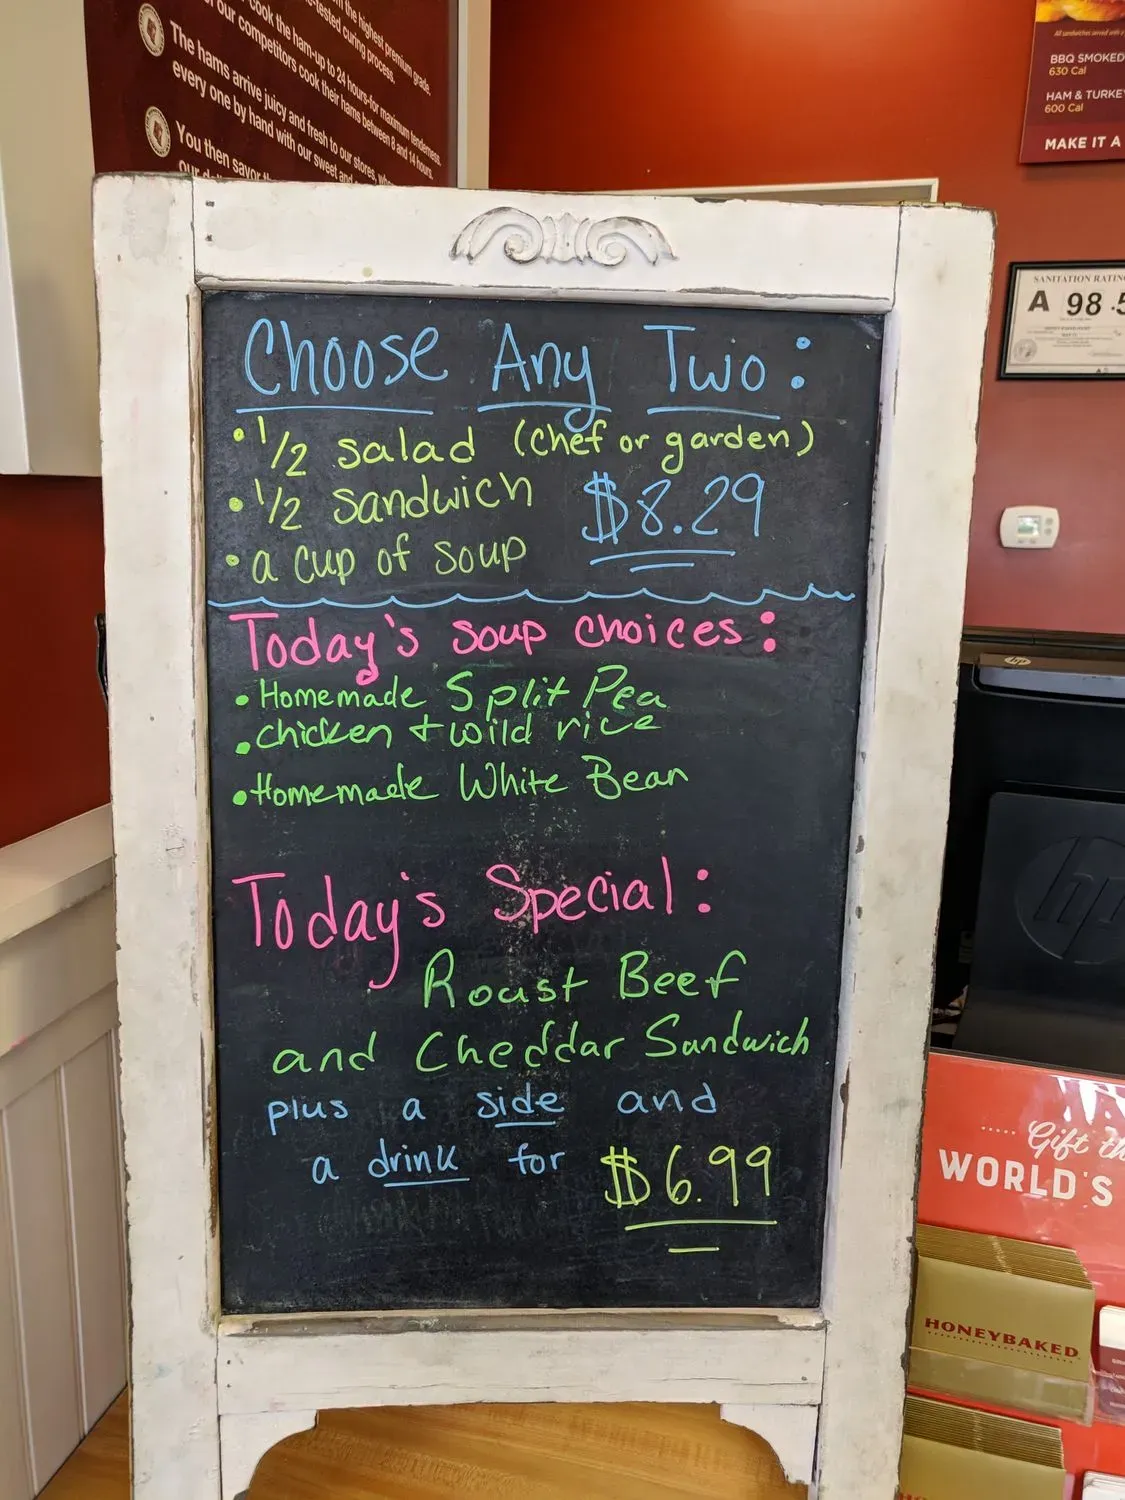 m the highest premium grade.
-tested curing process.
cook the ham-up to 24 hours-for maximum tenderness.
of our competitors cook their hams between 8 and 14 hours.
The hams arrive juicy and fresh to our stores,
every one by hand with our sweet and
You then savor
All sandwiches served with
BBQ SMOKED
630 Cal
HAM & TURKEY
600 Cal
MAKE IT A
SANITATION RATIN
A 98.5
Choose Any Two:
• 1/2 salad (chef or garden)
• 1/2 sandwich $8.29
• a cup of soup
Today's soup choices:
• Homemade Split Pea
• chicken + wild rice
• Homemade White Bean
Today's Special:
Roast Beef
and Cheddar Sandwich
plus a side and
a drink for $6.99
hp
hp
Gift th
WORLD'S
HONEYBAKED